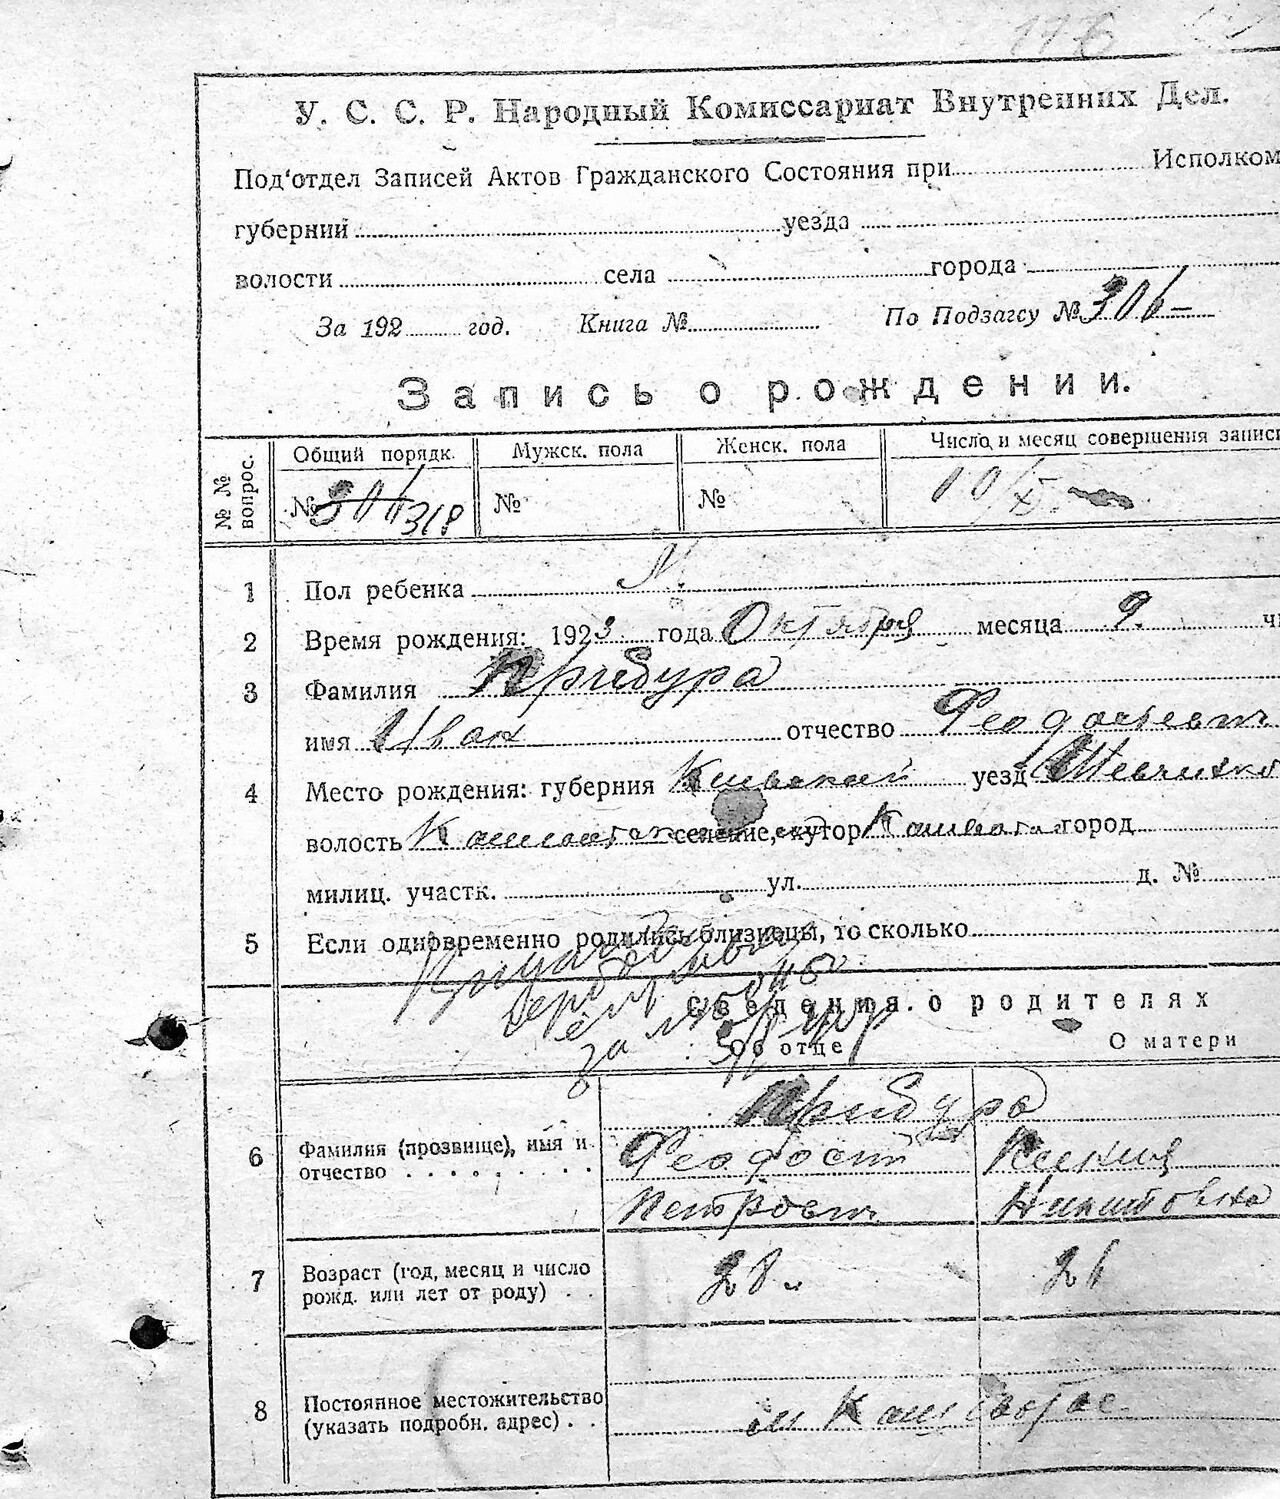 116
У. С. С. Р. Народный Комиссариат Внутренних Дел.
Под'отдел Записей Актов Гражданского Состояния при Исполком
губерний уезда
волости села города
За 192 год. Книга № По Подзагсу № 306-
Запись о рождении.
№ № вопрос. Общий порядк. Мужск. пола Женск. пола Число и месяц совершения записи
№ 306 318 № № 10/X.
1 Пол ребенка М.
2 Время рождения: 1923 года Октября месяца 9. чи
3 Фамилия Прибура
имя Иван отчество Феодосьевич
4 Место рождения: губерния Киевской уезд Шевченко
волость селение, хутор город
милиц. участк. ул. д. №
5 Если одновременно родились близнецы, то сколько
за №
Сведения о родителях
Об отце О матери
6 Фамилия (прозвище), имя и Прибура
отчество Феодосий Ксения
Петрович Никитовна
7 Возраст (год, месяц и число 28 26
рожд. или лет от роду)
8 Постоянное местожительство
(указать подробн. адрес) м